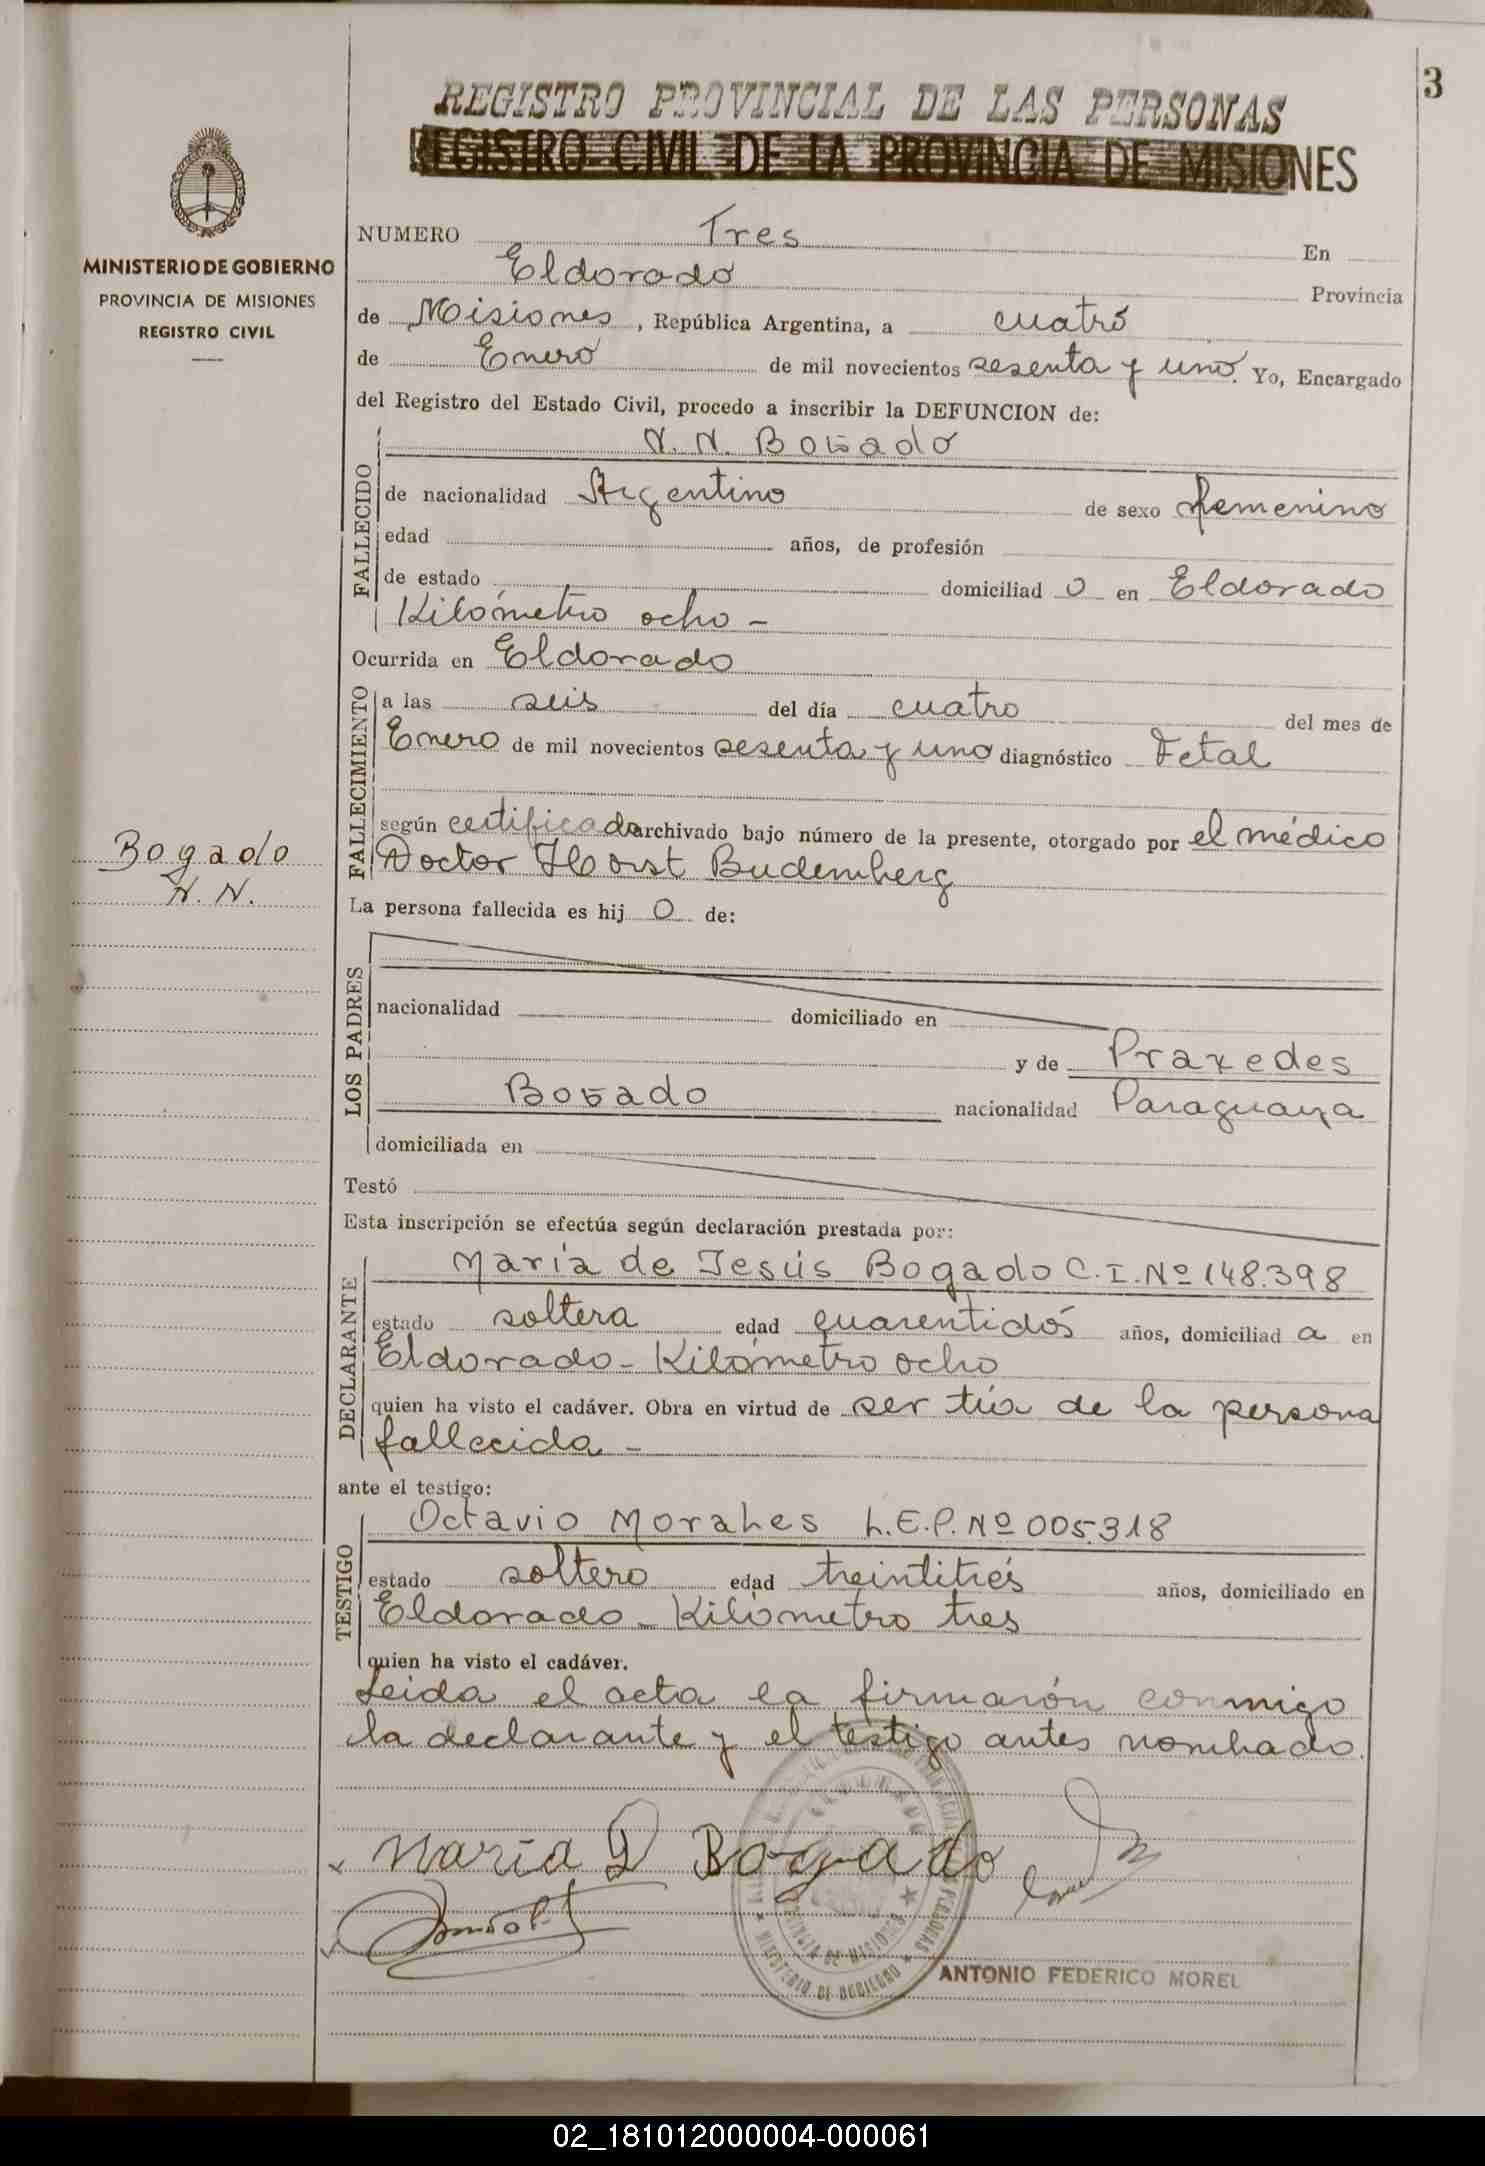 3
REGISTRO PROVINCIAL DE LAS PERSONAS
REGISTRO CIVIL DE LA PROVINCIA DE MISIONES
MINISTERIO DE GOBIERNO
PROVINCIA DE MISIONES
REGISTRO CIVIL
NUMERO Tres En
Eldorado Provincia
de Misiones, República Argentina, a cuatro
de Enero de mil novecientos sesenta y uno. Yo, Encargado
del Registro del Estado Civil, procedo a inscribir la DEFUNCION de:
FALLECIDO
N. N. Bogado
de nacionalidad Argentino de sexo femenino
edad años, de profesión
de estado domiciliad o en Eldorado
Kilómetro ocho -
Ocurrida en Eldorado
FALLECIMIENTO
a las seis del día cuatro del mes de
Enero de mil novecientos sesenta y uno diagnóstico Fetal
según certificado archivado bajo número de la presente, otorgado por el médico
Doctor Horst Budemberg
Bogado
N. N.
La persona fallecida es hij o de:
LOS PADRES
nacionalidad domiciliado en
y de Praxedes
Bogado nacionalidad Paraguaya
domiciliada en
Testó
Esta inscripción se efectúa según declaración prestada por:
DECLARANTE
María de Jesús Bogado C.I. Nº 148.398
estado soltera edad cuarentidós años, domiciliad a en
Eldorado - Kilómetro ocho
quien ha visto el cadáver. Obra en virtud de ser tía de la persona
fallecida -
ante el testigo:
TESTIGO
Octavio Morales L.E.P. Nº 005.318
estado soltero edad treintitrés años, domiciliado en
Eldorado - Kilómetro tres
quien ha visto el cadáver.
Leida el acta la firmarón conmigo
la declarante y el testigo antes nombado.
María D Bogado
PROVINCIA DE MISIONES
MINISTERIO DE GOBIERNO
ANTONIO FEDERICO MOREL
02_181012000004-000061